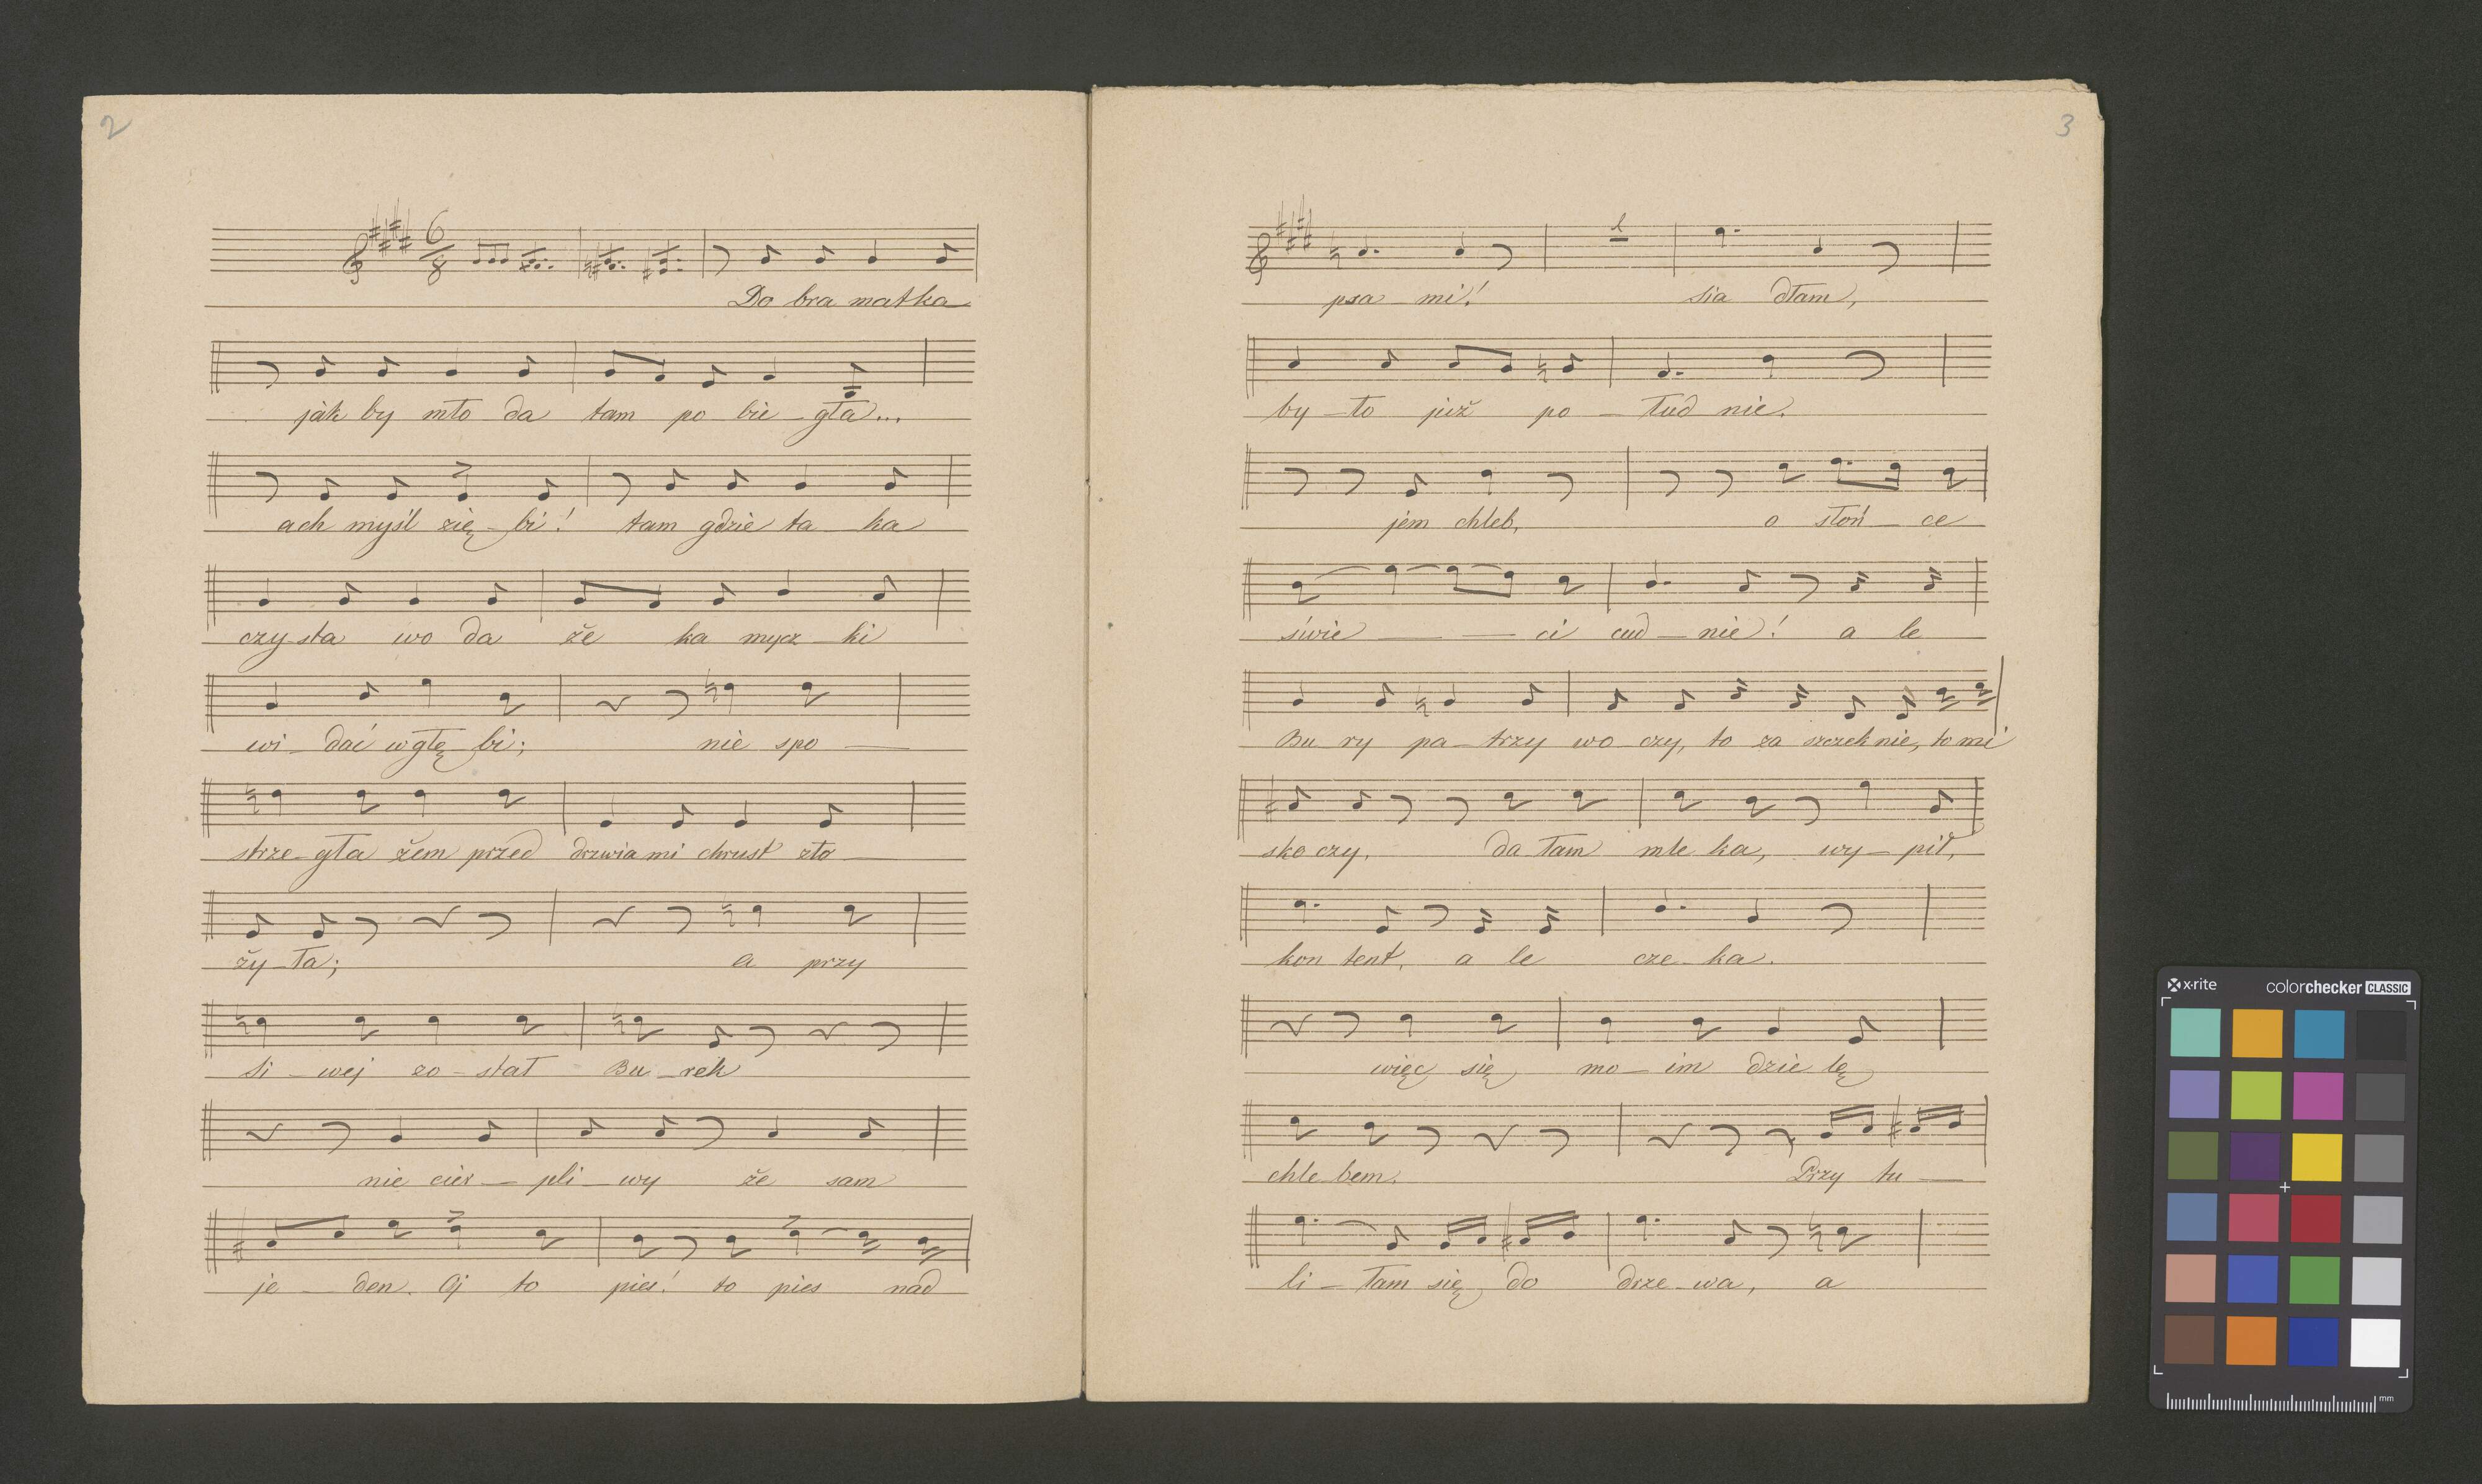 2
6
8
Do bra matka
jak by mło da tam po bie – gła...
ach myśl zię – bi! tam gdzie ta ka
czy sta wo da że ka mycz – ki
wi – dać w głę – bi; nie spo —
strze – gła żem przed drzwia mi chrust zło —
ży – ła; a przy
si – wej zo – stał Bu – rek
nie cier — pli – wy że sam
je — den. Oj to pies! to pies nad
3
psa – mi! 1 sia dłam,
by – ło już po – łud nie.
jem chleb, o słoń – ce
świe — — ci cud – nie! a le
Bu ry pa – trzy wo czy, to za szczek nie, to mi
sko czy, da łam mle ka, wy – pił,
kon tent, a le cze – ka.
więc się mo – im dzie lę
chle bem. Przy tu —
li – łam się do drze – wa, a
x·rite colorchecker CLASSIC
mm